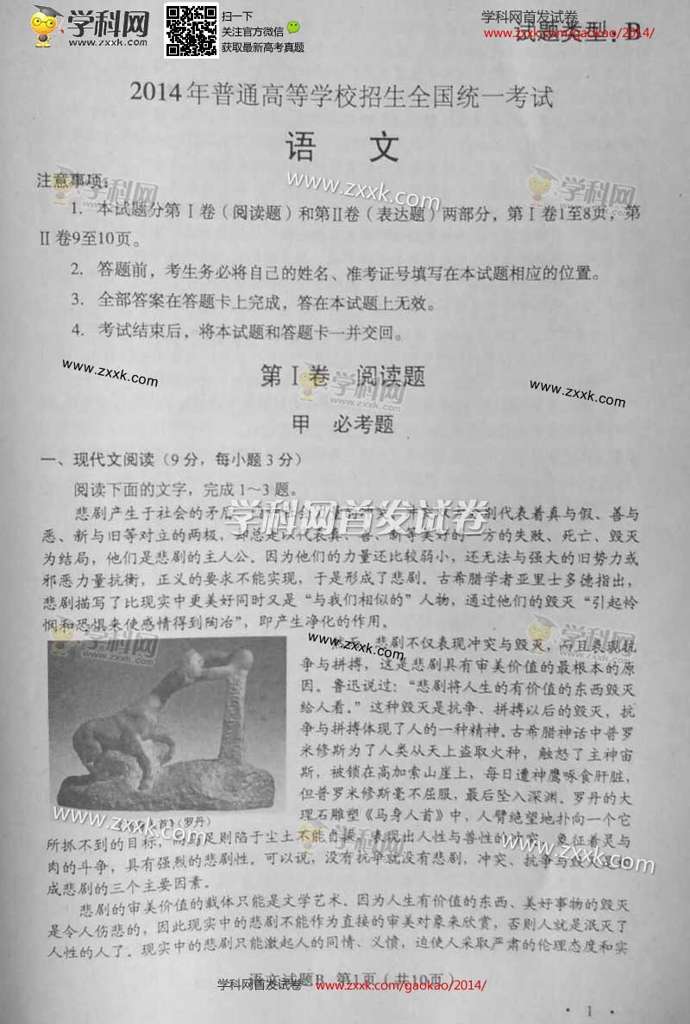 学科网
www.zxxk.com
扫一下
关注官方微信
获取最新高考真题
学科网首发试卷
www.zxxk.com/gaokao/2014/
试题类型：B
2014年普通高等学校招生全国统一考试
语 文
注意事项：
学科网
www.zxxk.com
学科网
1. 本试题分第Ⅰ卷（阅读题）和第Ⅱ卷（表达题）两部分，第Ⅰ卷1至8页，第
Ⅱ卷9至10页。
2. 答题前，考生务必将自己的姓名、准考证号填写在本试题相应的位置。
3. 全部答案在答题卡上完成，答在本试题上无效。
4. 考试结束后，将本试题和答题卡一并交回。
www.zxxk.com
第Ⅰ卷 阅读题
学科网
www.zxxk.com
甲 必考题
一、现代文阅读（9分，每小题3分）
阅读下面的文字，完成1～3题。
悲剧产生于社会的矛盾、别代表着真与假、善与
学科网首发试卷
恶、新与旧等对立的两极，却总是以代表真、善、新等美好的一方的失败、死亡、毁灭
为结局，他们是悲剧的主人公。因为他们的力量还比较弱小，还无法与强大的旧势力或
邪恶力量抗衡，正义的要求不能实现，于是形成了悲剧。古希腊学者亚里士多德指出，
悲剧描写了比现实中更美好同时又是“与我们相似的”人物，通过他们的毁灭“引起怜
悯和恐惧来使感情得到陶冶”，即产生净化的作用。
学科网
www.zxxk.com
学科网
悲剧不仅表现冲突与毁灭，而且表现抗
争与拼搏，这是悲剧具有审美价值的最根本的原
因。鲁迅说过：“悲剧将人生的有价值的东西毁灭
给人看。”这种毁灭是抗争、拼搏以后的毁灭，抗
争与拼搏体现了人的一种精神。古希腊神话中普罗
米修斯为了人类从天上盗取火种，触怒了主神宙
斯，被锁在高加索山崖上，每日遭神鹰啄食肝脏，
但普罗米修斯毫不屈服，最后坠入深渊。罗丹的大
理石雕塑《马身人首》中，人臂绝望地扑向一个它
人首》（罗丹）
www.zxxk.com
所抓不到的目标，而马足则陷于尘土不能自拔，表现出人性与兽性的冲突，象征着灵与
www.zxxk.com
肉的斗争，具有强烈的悲剧性。可以说，没有抗争就没有悲剧，冲突、抗争与毁灭是
成悲剧的三个主要因素。
悲剧的审美价值的载体只能是文学艺术。因为人生有价值的东西、美好事物的毁灭
是令人伤悲的，因此现实中的悲剧不能作为直接的审美对象来欣赏，否则人就是泯灭了
人性的人了。现实中的悲剧只能激起人的同情、义愤，迫使人采取严肃的伦理态度和实
语文试题B 第1页（共10页）
学科网首发试卷
www.zxxk.com/gaokao/2014/
· 1 ·